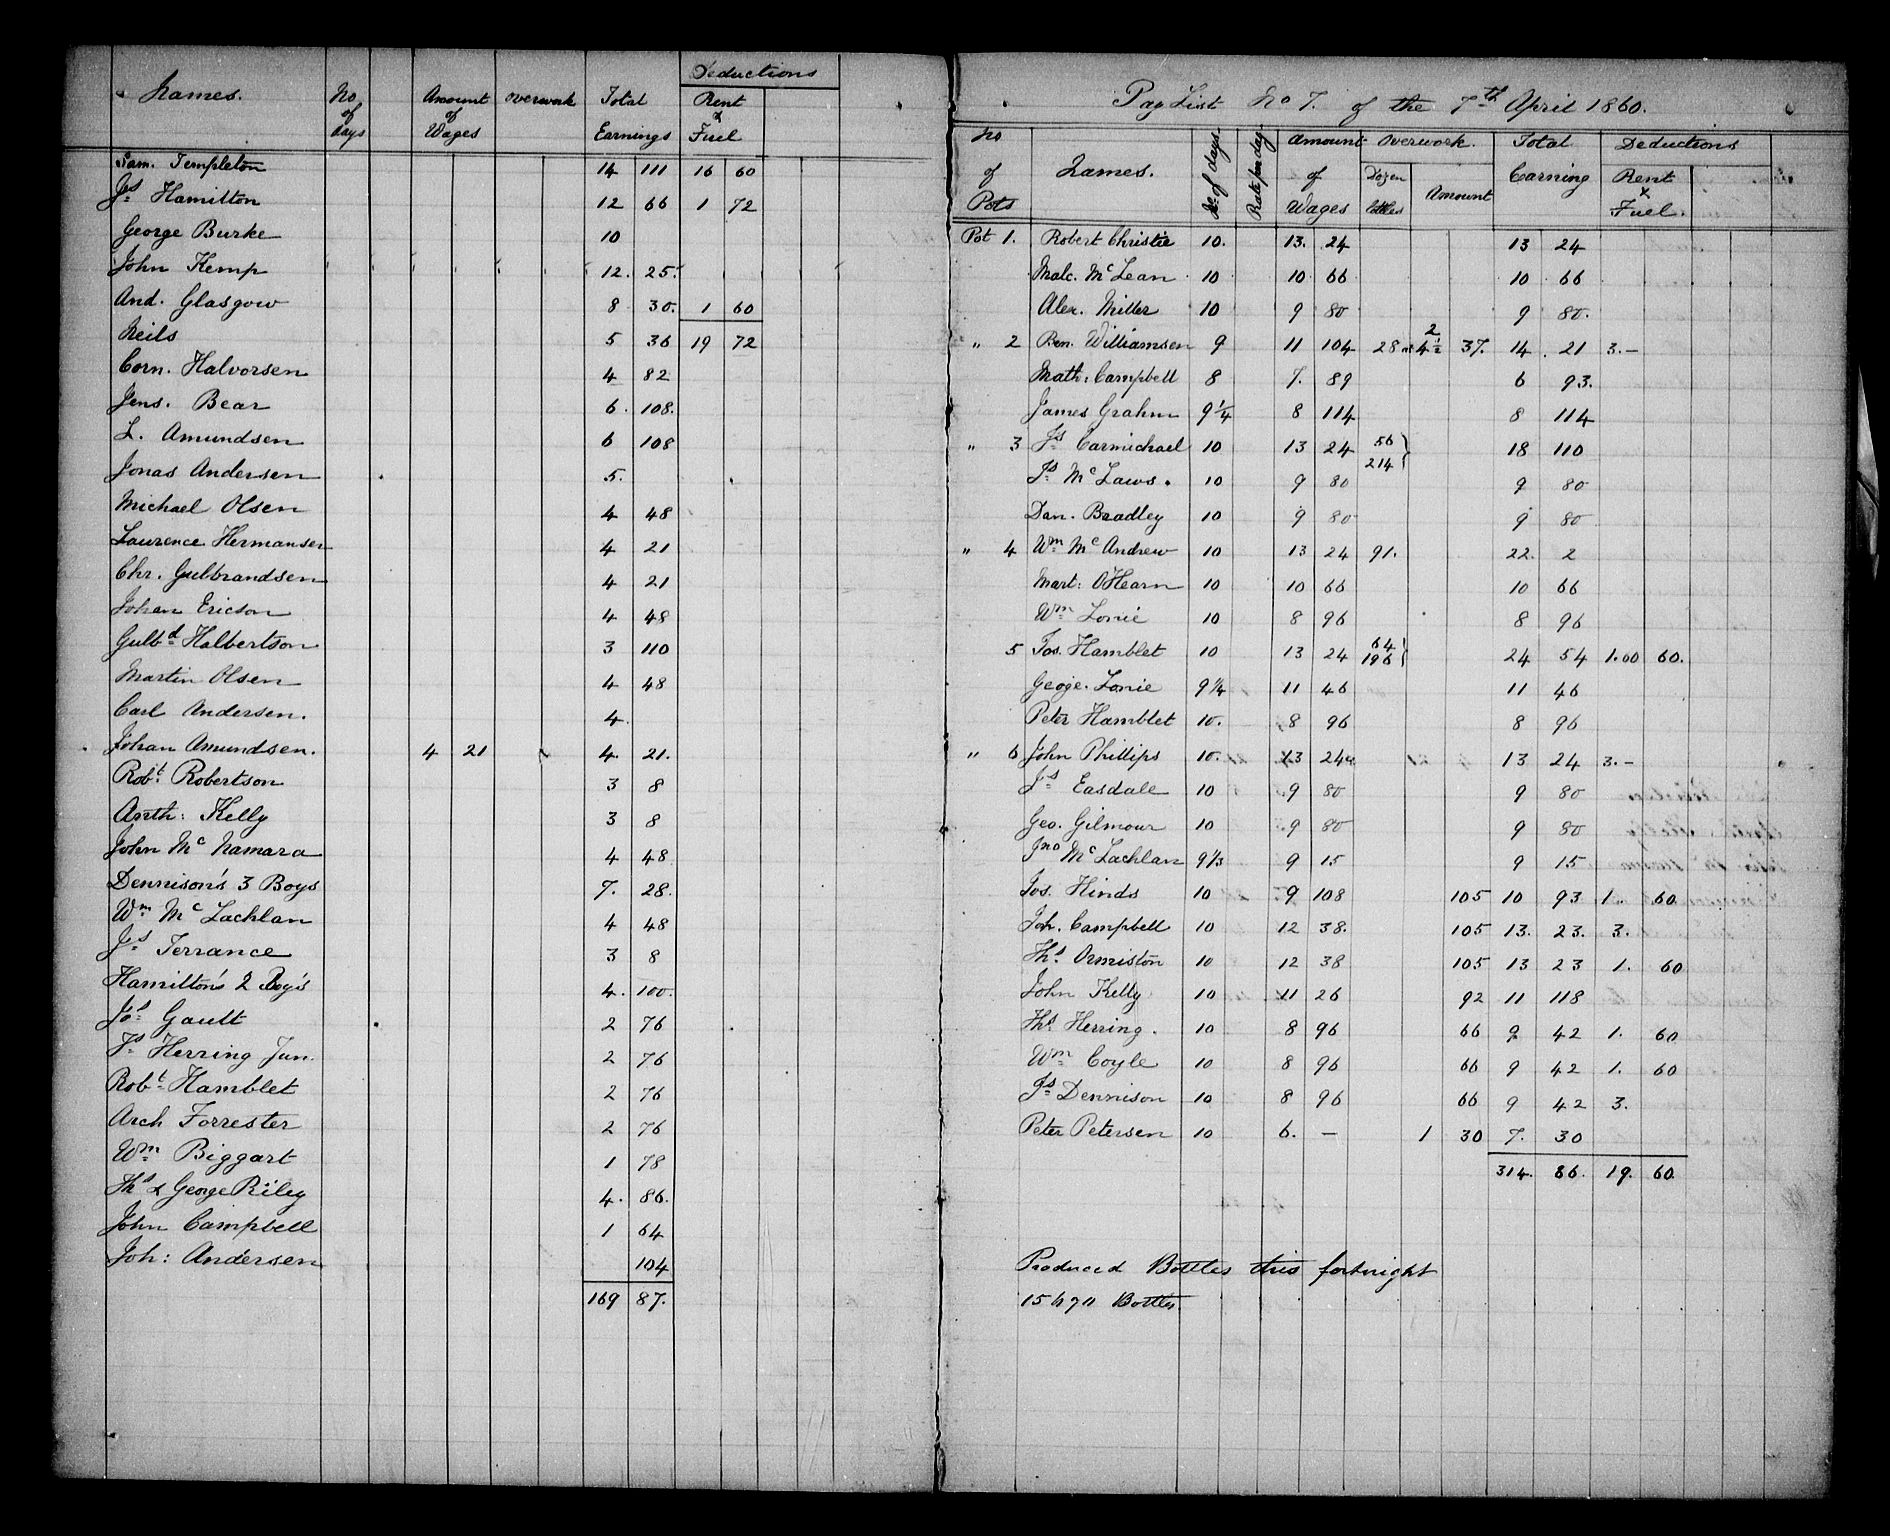 Names. No of days Amount of Wages Overwork Total Earnings Deductions Rent & Fuel
Sam. Templeton 14 111 16 60
Js Hamilton 12 66 1 72
George Burke 10
John Kemp 12. 25.
And. Glasgow 8 30. 1 60
Neils 5 36 19 72
Corn. Halvorsen 4 82
Jens. Bear 6. 108.
L. Amundsen 6 108
Jonas Andersen 5.
Michael Olsen 4 48
Laurence Hermansen 4 21
Chr. Gulbrandsen 4 21
Johan Ericson 4 48
Gulbd Halbertson 3 110
Martin Olsen 4 48
Carl Andersen. 4.
Johan Amundsen. 4 21 4. 21.
Robt Robertson 3 8
Anth: Kelly 3 8
John Mc Namara 4 48
Dennison's 3 Boys 7. 28.
Wm Mc Lachlan 4 48
Js Terrance 3 8
Hamilton's 2 Boy's 4. 100.
Jos Gault 2 76
Js Herring Jun. 2 76
Robt Hamblet 2 76
Arch Forrester 2 76
Wm Biggart 1 78
Ths & George Riley 4. 86.
John Campbell 1 64
Joh: Andersen 104
169 87.
Pay List No 7. of the 7th April 1860.
No of Pots Names. No of days. Rate per day Amount of Wages Overwork Dozen bottles Amount Total Earning Deductions Rent & Fuel.
Pot 1. Robert Christie 10. 13. 24 13 24
Malc. Mc Lean 10 10 66 10 66
Alex. Miller 10 9 80 9 80.
" 2 Ben. Williamsen 9 11 104 28 2 4½ 37. 14. 21 3.–
Math: Campbell 8 7. 89 6 93.
James Grahm 9¼ 8 114 8 114
" 3 Js Carmichael 10 13 24 56 214 } 18 110
Js Mc Laws. 10 9 80 9 80
Dan. Bradley 10 9 80 9 80
" 4 Wm Mc Andrew 10 13 24 91. 22. 2
Mart: OHearn 10 10 66 10 66
Wm Lonie 10 8 96 8 96
5 Jos. Hamblet 10 13 24 64 196 } 24 54 1.00 60.
Geoje. Lonie 9¼ 11 46 11 46
Peter Hamblet 10. 8 96 8 96
" 6 John Phillips 10. 13 24 13 24 3.–
Js Easdale 10 9 80 9 80
Geo. Gilmour 10 9 80 9 80
Jno Mc Lachlan 9⅓ 9 15 9 15
Jos. Hinds 10 9 108 105 10 93 1. 60
Joh. Campbell 10 12 38. 105 13. 23. 3.
Ths Ormiston 10 12 38 105 13 23 1. 60
John Kelly 10 11 26 92 11 118
Ths Herring. 10 8 96 66 9 42 1. 60
Wm Coyle 10 8 96 66 9 42 1. 60
Js Dennison 10 8 96 66 9 42 3.
Peter Petersen 10 6. – 1 30 7. 30
314. 86. 19. 60.
Produced Bottles this fortnight
Bottles.